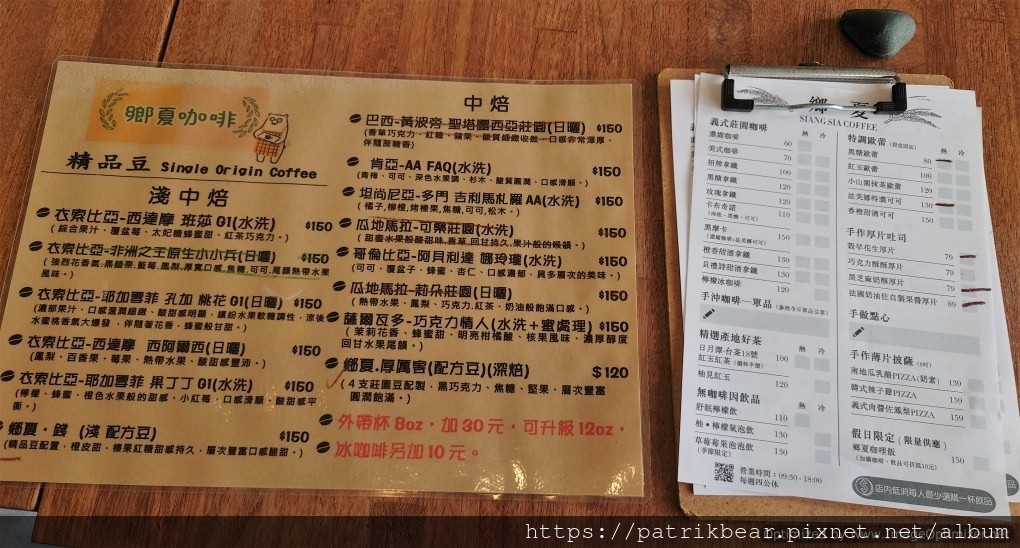 鄉夏咖啡
精品豆 Single Origin Coffee
淺中焙
衣索比亞-西達摩 班莎 G1(水洗) $150
(綜合果汁、覆盆莓、太妃糖蜂蜜甜、紅茶巧克力。)
衣索比亞-非洲之王原生小小兵(日曬) $150
風味。)
衣索比亞-耶加雪菲 孔加 桃花 G1(日曬) $150
水蜜桃香氣大爆發，伴隨著花香、蜂蜜般甘甜。)
衣索比亞-西達摩 西阿爾西(日曬) $150
(鳳梨、百香果、莓果、熱帶水果、酸甜感豐沛。)
衣索比亞-耶加雪菲 果丁丁 G1(水洗) $150
(檸檬、蜂蜜、橙色水果般的甜感、小紅莓、口感滑順、酸甜感平
衡。)
鄉夏・ (淺 配方豆) $150
(精品豆配置，橙皮甜、榛果紅糖甜感持久，層次豐富口感酸甜。)
中焙
巴西-黃波旁 聖塔露西亞莊園(日曬) $150
伴隨蔗糖香)
肯亞-AA FAQ(水洗) $150
(青梅、可可、深色水果調、杉木、酸質圓潤、口感滑順。)
坦尚尼亞-多門 吉利馬札羅 AA(水洗) $150
(橘子,柳橙,烤榛果,焦糖,可可,松木。)
瓜地馬拉-可樂莊園(日曬) $150
(甜香水果般酸甜味,香草,回甘持久,果汁般的喉韻。)
哥倫比亞-阿貝利達 娜玲瓏(水洗) $150
(可可、覆盆子、蜂蜜、杏仁、口感濃郁、具多層次的美味。)
瓜地馬拉-莉朵莊園(日曬) $150
(熱帶水果、鳳梨、巧克力,紅茶、奶油般飽滿口感。)
薩爾瓦多-巧克力情人(水洗+蜜處理) $150
(茉莉花香、蜂蜜甜、明亮柑橘酸、核果風味、濃厚醇度
回甘水果尾韻。)
鄉夏.厚厲害(配方豆)(深焙) $120
(4支莊園豆配製，黑巧克力、焦糖、堅果、層次豐富
圓潤飽滿。)
外帶杯 8oz，加 30元，可升級 12oz，
冰咖啡另加 10元。
鄉夏
SIANG SIA COFFEE
義式莊園咖啡 熱 冷
濃縮咖啡 60
美式咖啡 70
招牌拿鐵 100
黑糖拿鐵 130
玫瑰拿鐵 130
卡布奇諾 110
(肉桂、黑糖、可可)
黑摩卡 150
橙香甜酒拿鐵 130
貝禮詩甜酒拿鐵 130
檸檬冰咖啡 130
手沖咖啡—單品 (參照今日單品豆單)
精選產地好茶
日月潭-台茶18號 100
紅玉紅茶
柚見紅玉 120
無咖啡因飲品 熱 冷
舒眠檸檬飲 110
柚・檸檬氣泡飲 130
草莓莓果泡泡飲 130
(季節限定)
營業時間：09:30 - 18:00
每週四公休
特調歐蕾 熱 冷
黑糖歐蕾 80
紅玉歐蕾 100
小山園抹茶歐蕾 120
法芙娜特濃可可 130
香橙甜酒可可 150
手作厚片吐司
穀早花生厚片 79
巧克力酥酥厚片 79
黑芝麻奶酥厚片 79
法國奶油佐自製果醬厚片 89
手做點心
手作薄片披薩 (6吋)
南地瓜乳酪PIZZA(奶素) 139
韓式辣子雞PIZZA 159
義式肉醬佐鳳梨PIZZA 159
假日限定 (限量供應)
鄉夏咖哩飯 150
(加購咖啡、飲品可折抵10元)
店內低消每人最少選購一杯飲品
https://patrikbear.pixnet.net/album